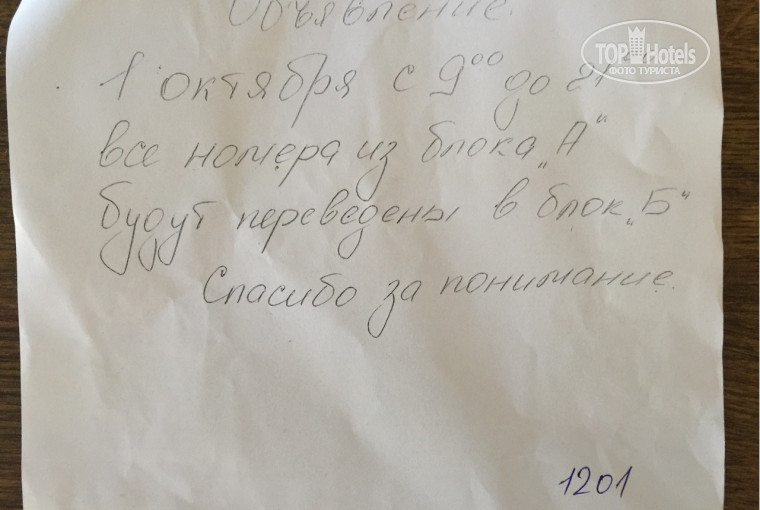 Объявление.
TOP Hotels
ФОТО ТУРИСТА
1 октября с 9⁰⁰ до 21
все номера из блока „А“
будут переведены в блок „Б“
Спасибо за понимание.
1201